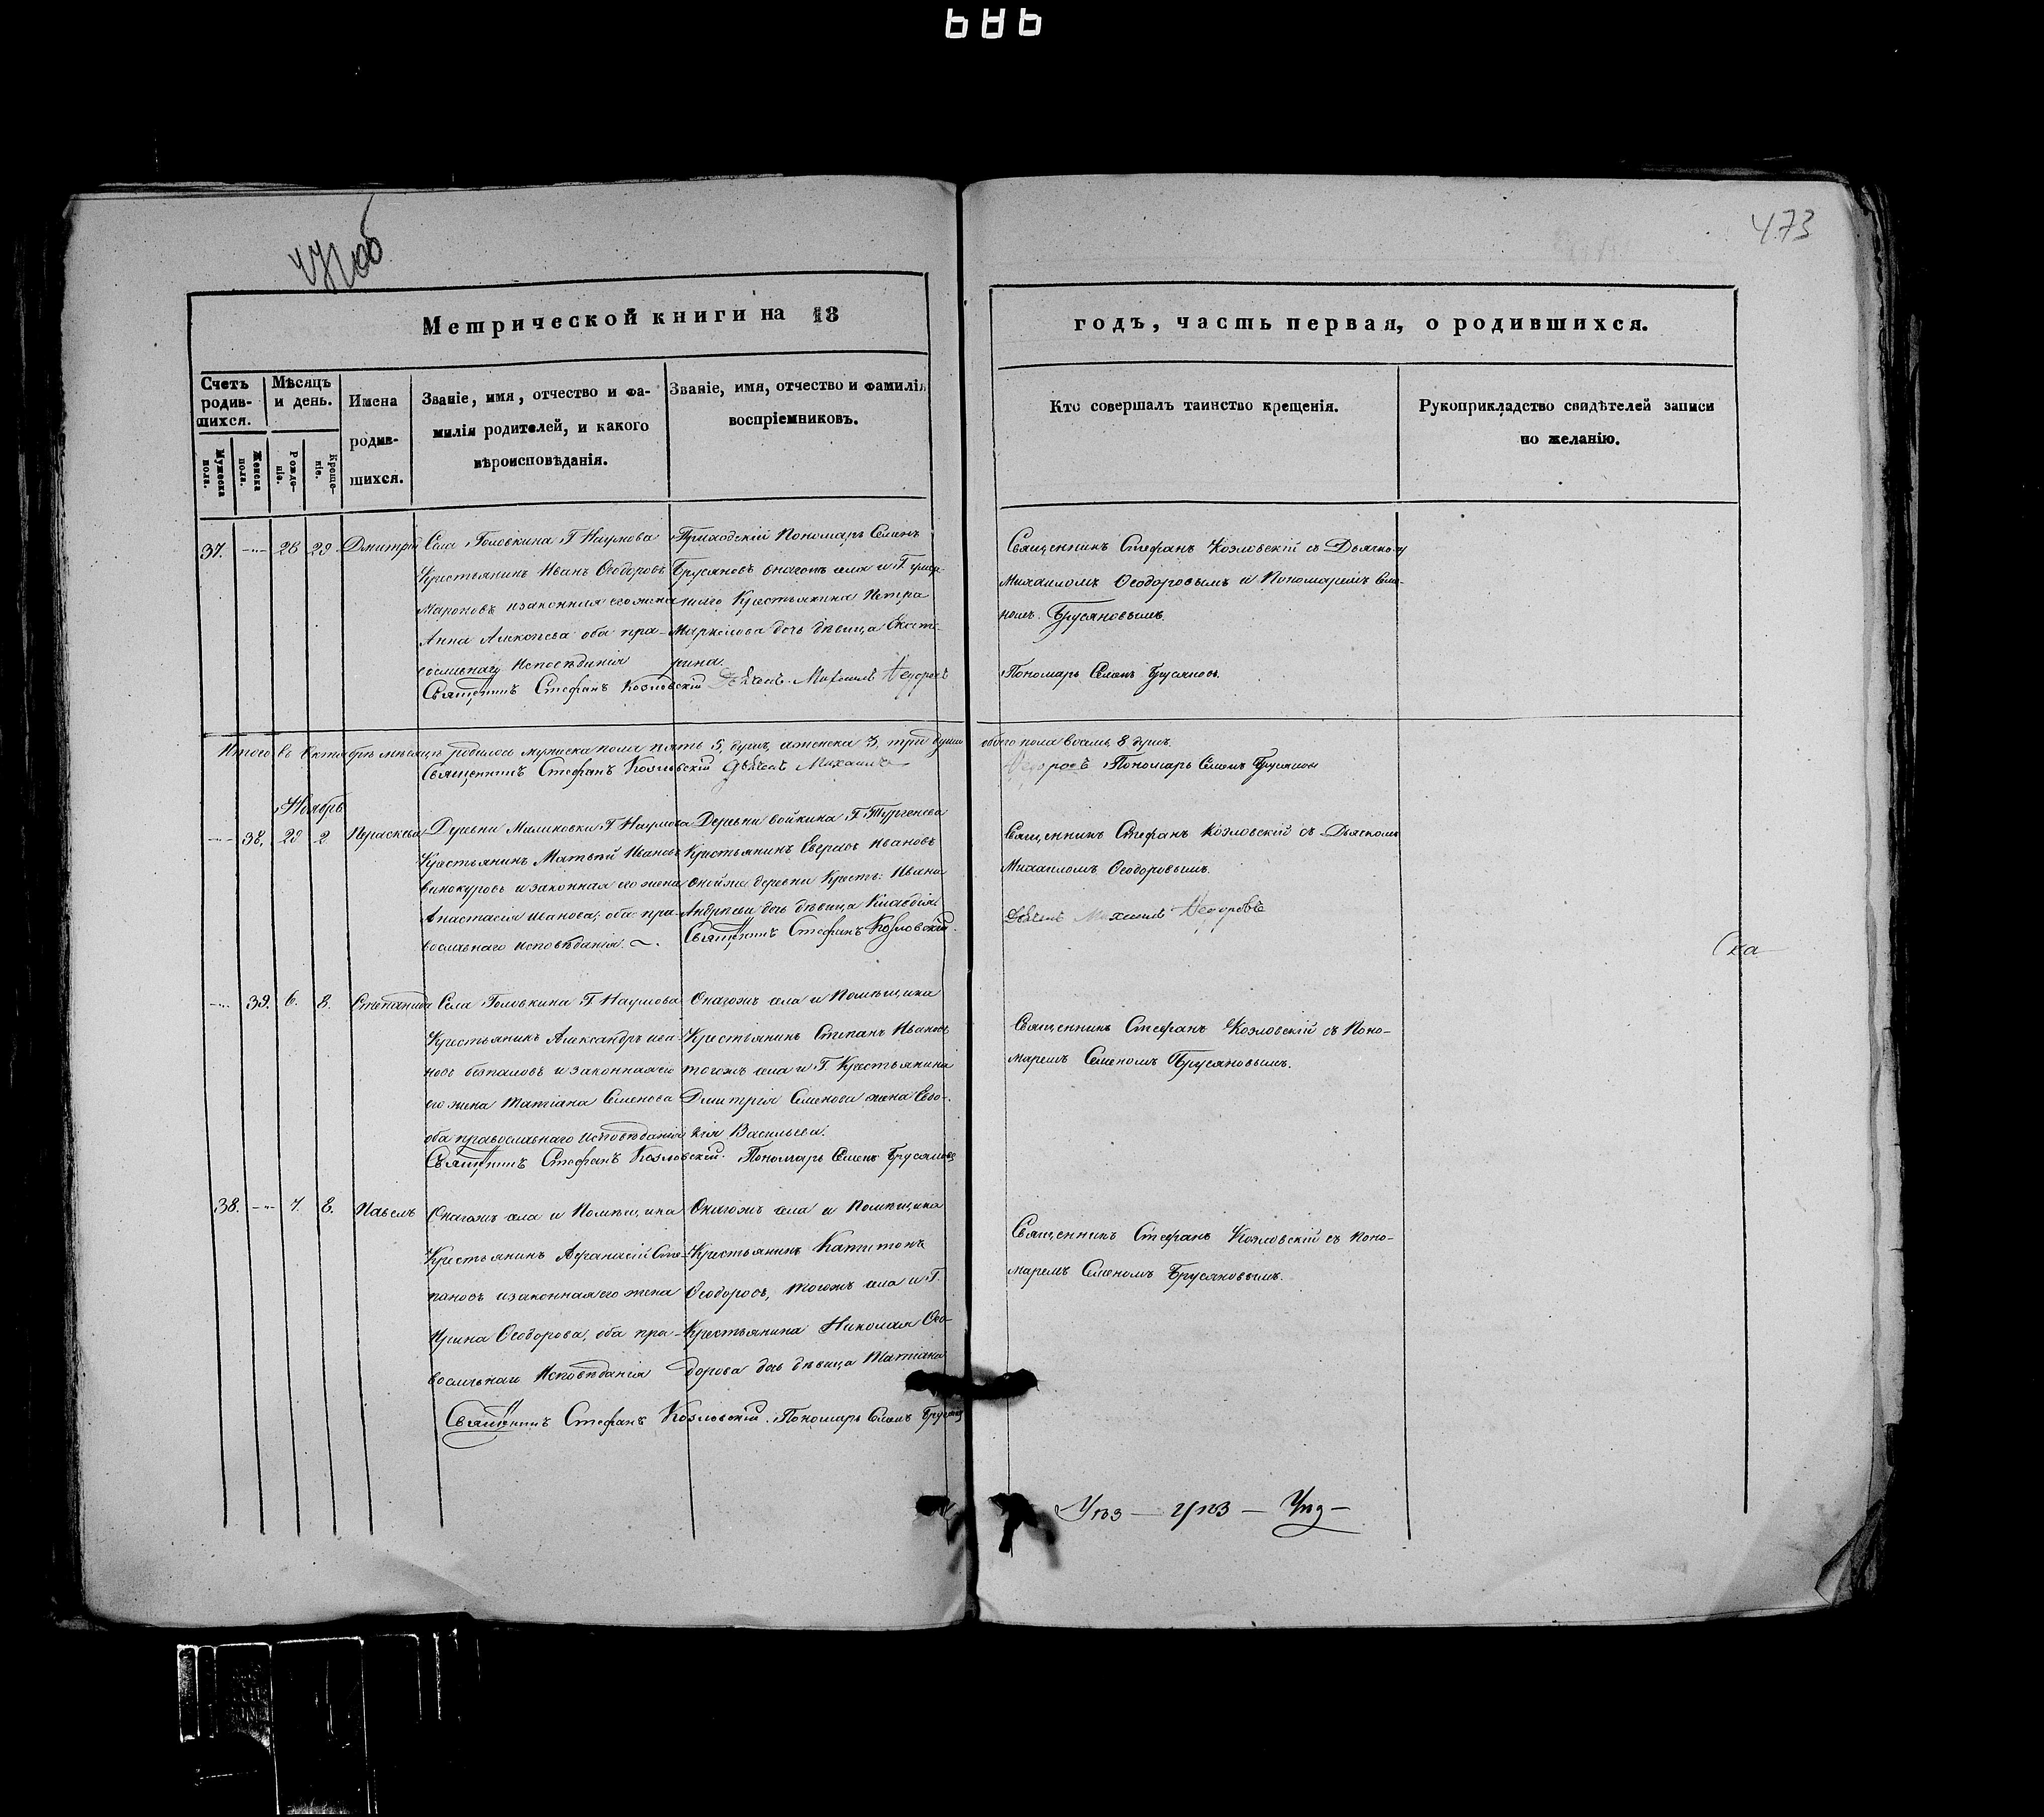 473
Метрической книги на 18
годъ, часть первая, о родившихся.
Счетъ родив-шихся.
Мѣсяцъ и день.
Имена родив-шихся.
Званіе, имя, отчество и фа-
милія родителей, и какого
вѣроисповѣданія.
Званіе, имя, отчество и фамилія
воспріемниковъ.
Кто совершалъ таинство крещенія.
Рукоприкладство свидѣтелей записи
по желанію.
Мужеска пола.
Женска пола.
Рожде-ніе.
Креще-ніе.
37. 28 29 Дмитрій
Села Головкина Г Наумова
Крестьянинъ Иванъ Ѳеодоровъ
Мароновъ и законная его жена
Анна Алексѣева оба пра-
вославнаго Исповѣданія
Приходскій Пономарь Семенъ
Брусяновъ онагожъ села и Г.
Крестьянина Петра
дочь дѣвица Екате-
рина.
Священникъ Стефанъ Козловскій Дьячекъ Михаилъ Ѳедоровъ
Священникъ Стефанъ Козловскій съ Дьячкомъ
Михаиломъ Ѳеодоровымъ и Пономаремъ Семе-
номъ Брусяновымъ.
Пономарь Семенъ Брусяновъ.
Итого въ Октябрѣ мѣсяцѣ родилось мужеска пола пять 5, душъ, а женска 3, три души обоего пола восемь 8 душъ.
Священникъ Стефанъ Козловскій Дьячекъ Михаилъ Ѳедоровъ Пономарь Семенъ Брусяновъ
Ноябрь
38, 29 2 Параскева
Деревни Малиновки Г Наумова
Крестьянинъ Матвѣй Ивановъ
Винокуровъ и законная его жена
Анастасія Иванова; оба пра-
вославнаго исповѣданія.
Деревни Войкина Г. Тургенева
Крестьянинъ Ивановъ
онойже деревни Крест: Ивана
Андреева дочь дѣвица Клавдія
Священникъ Стефанъ Козловскій.
Священникъ Стефанъ Козловскій съ Дьячкомъ
Михаиломъ Ѳеодоровымъ.
Дьячекъ Михаилъ Ѳедоровъ
39. 6. 8. Степанида
Села Головкина Г Наумова
Крестьянинъ Александръ Ива-
новъ Безпаловъ и законная его
его жена Татіана Семенова
оба православнаго исповѣданія
Онагожъ села и Помѣщика
Крестьянинъ Степанъ Ивановъ
тогожъ села и Г. Крестьянина
Дмитрія Семенова жена Евдо-
кія Васильева.
Священникъ Стефанъ Козловскій. Пономарь Семенъ Брусяновъ
Священникъ Стефанъ Козловскій съ Поно-
маремъ Семеномъ Брусяновымъ.
38. 7. 8. Павелъ
Онагожъ села и Помѣщика
Крестьянинъ Афанасій Сте-
пановъ и законная его жена
Ирина Ѳеодорова, оба пра-
вославнаго Исповѣданія
Онагожъ села и Помѣщика
Крестьянинъ Капитонъ
Ѳеодоровъ, тогожъ села и Г.
Крестьянина Николая Ѳео-
дорова дочь дѣвица Татіана
Священникъ Стефанъ Козловскій. Пономарь Семенъ Брусяновъ
Священникъ Стефанъ Козловскій съ Поно-
маремъ Семеномъ Брусяновымъ.